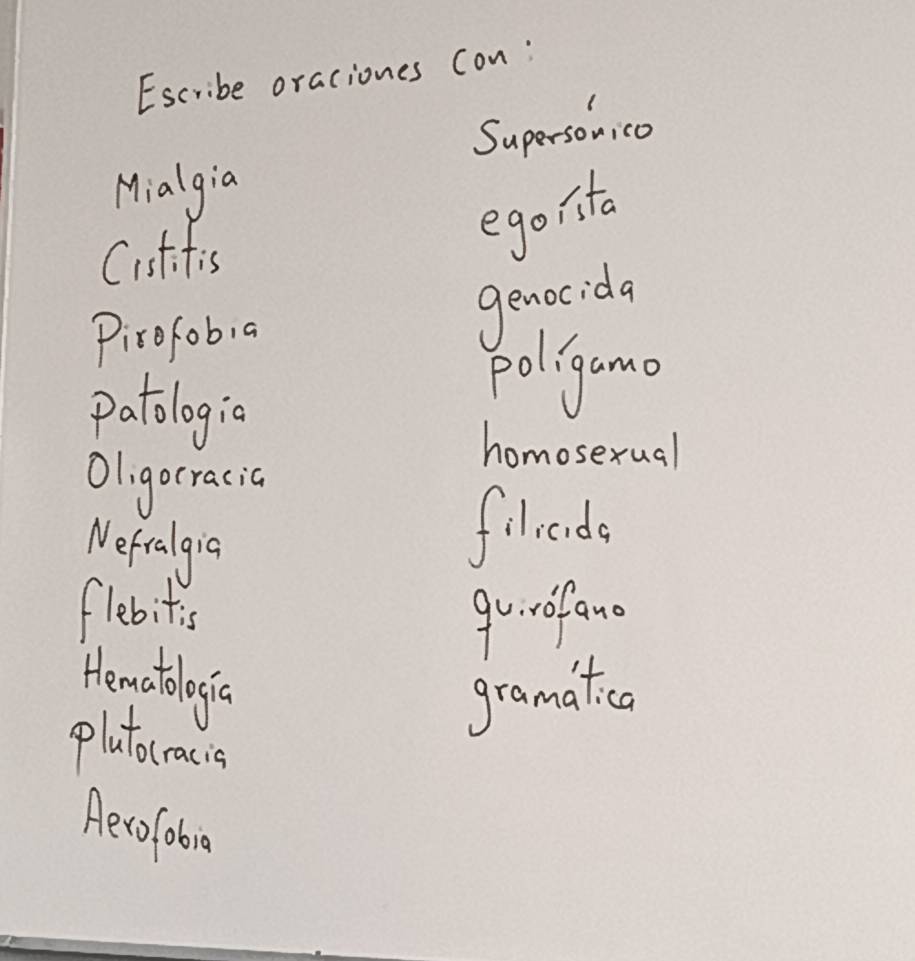 Escribe oraciones con:
Mialgia
Cistitis
Pirofobia
Patología
Oligocracia
Nefralgia
flebitis
Hematología
Plutocracia
Aerofobia
Supersónico
egoísta
genocida
polígamo
homosexual
filicida
quirófano
gramática